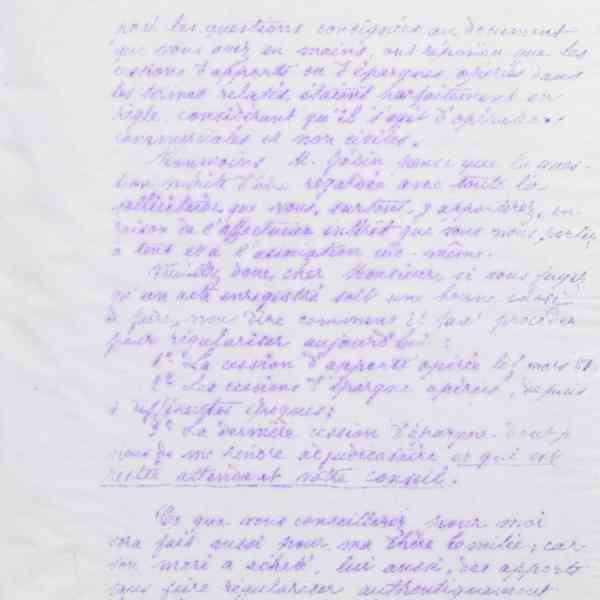 posé les questions consignées au document
que vous avez en mains, ont répondu que les
cessions d'apports ou d'épargnes opérées dans
les termes relatés, étaient parfaitement en
règle, considérant qu'il s'agit d'opérations
commerciales et non civiles.
Néanmoins M. Godin pense que la ques-
tion mérite d'être regardée avec toute la
sollicitude que vous, surtout, y apporterez, en
raison de l'affectueux intérêt que vous nous portez
à tous et à l'association elle-même.
Veuillez donc, cher Monsieur, si vous jugez
qu'un acte enregistré soit une bonne chose
à faire, nous dire comment il faut procéder
pour régulariser aujourd'hui :
1° La cession d'apports opérée le mars
2° Les cessions d'épargne opérées, depuis
à différentes époques;
3° La dernière cession d'épargne dont je
viens de me rendre adjudicataire et qui est
restée attendant votre conseil.
Ce que vous conseillerez pour moi
sera fait aussi pour ma chère Emilie; car
son mari a acheté, lui aussi, des apports
sans faire régulariser authentiquement